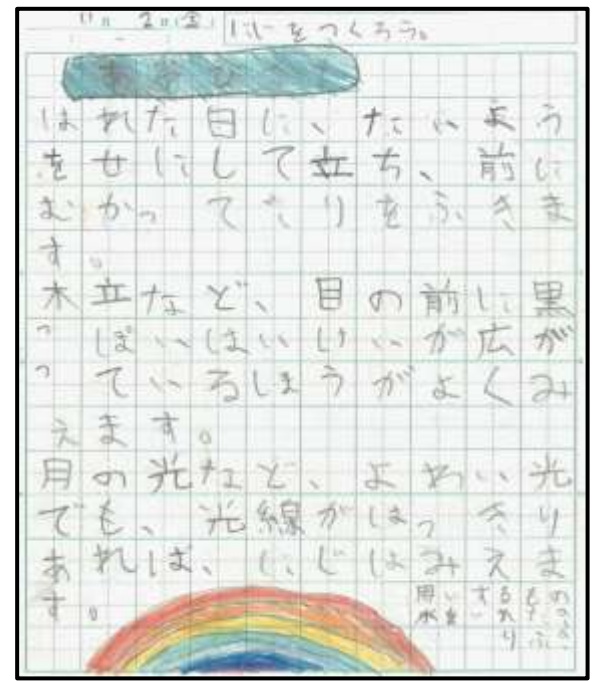 11月 2日(金) にじをつくろう。
あそび
はれた日に、たいよう
をせにして立ち、前に
むかってきりをふきま
す。
木立など、目の前に黒
っぽいはいけいが広が
っているほうがよくみ
えます。
月の光など、よわい光
でも、光線がはっきり
あれば、にじはみえま
す。